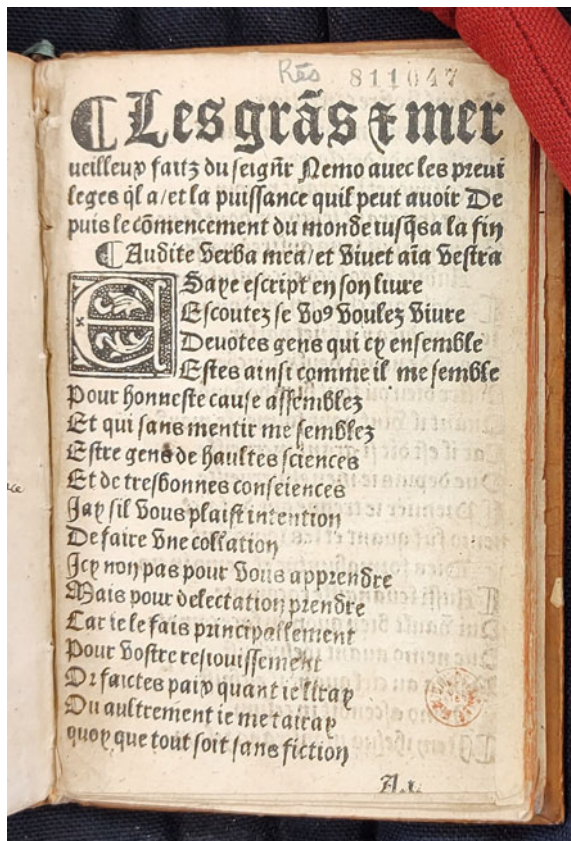 Rés 811047
¶ Les grãs ⁊ mer
ueilleux faitz du seign̄r Nemo auec les preui
leges q̃l a/et la puissance quil peut auoir De
puis le cõmencement du monde iusq̃s a la fin
¶ Audite verba mea/et viuet aĩa vestra
E Saye escript en son liure
Escoutez se voꝰ voulez viure
Deuotes gens qui cy ensemble
Estes ainsi comme il me semble
Pour honneste cause assemblez
Et qui sans mentir me semblez
Estre gens de haultes sciences
Et de tresbonnes consciences
Jay sil vous plaist intention
De faire vne collation
Icy non pas pour vous apprendre
Mais pour delectation prendre
Car ie le fais principallement
Pour vostre resiouissement
Or faictes paix quant ie liray
Ou aultrement ie me tairay
quoy que tout soit sans fiction
A.i.